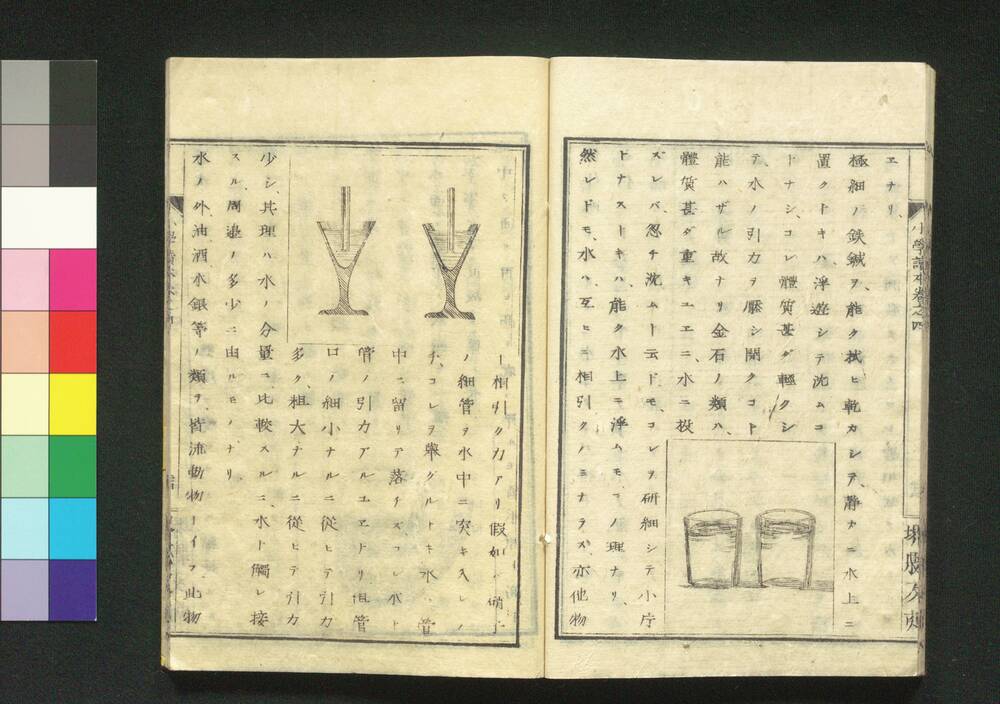 エナリ、
極細ノ鉄鍼ヲ、能ク拭ヒ乾カシテ、静カニ水上ニ
置クトキハ、浮遊シテ沈ムコ
トナシ、コレ體質甚ダ軽クシ
テ、水ノ引力ヲ壓シ開クコト
能ハザル故ナリ、金石ノ類ハ、
體質甚ダ重キユエニ、水ニ投
ズレバ、忽チ沈ムト云ドモ、コレヲ研細シテ小片
トナストキハ、能ク水上ニ浮ムモコノ理ナリ、
然レドモ、水ハ互ヒニ相引クノミナラズ、亦他物
ト相引ク力アリ假如バ硝子
ノ細管ヲ水中ニ突キ入レ
テ、コレヲ舉グルトキ水、管
中ニ留リテ落チズコレ水ト
管ノ引力アルユエナリ但管
口ノ細小ナルニ從ヒテ引力
多ク、粗大ナルニ從ヒテ引力
少シ、其理ハ水ノ分量ニ比較スルニ、水ト觸レ接
スル、周邊ノ多少ニ由ルモノナリ、
水ノ外、油酒水銀等ノ類ヲ、皆流動物トイフ、此物
小學讀本巻之四